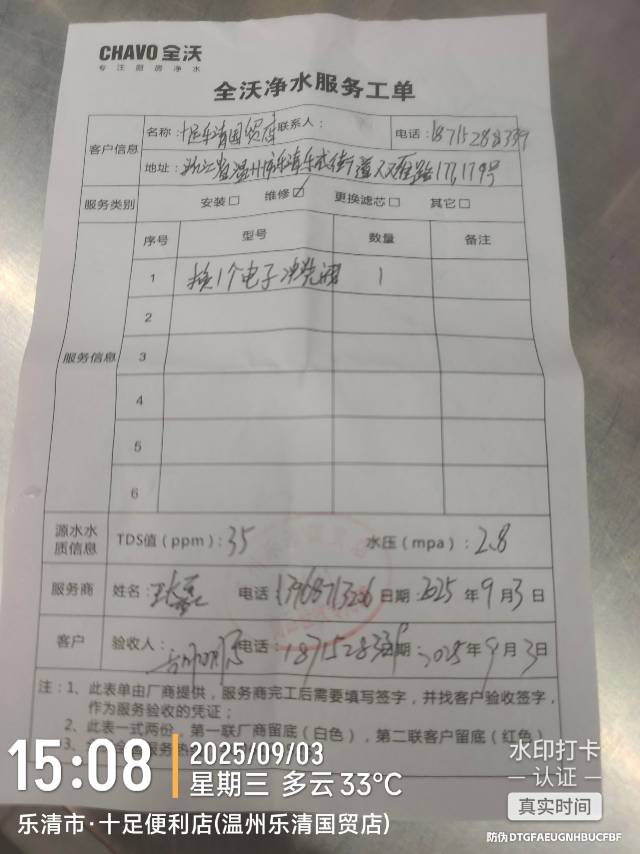 CHAVO 全沃
专注厨房净水
全沃净水服务工单
客户信息 名称：十足乐清国贸店 联系人： 电话：
地址：浙江省温州市乐清乐成街道 177,179号
服务类别 安装□ 维修☑ 更换滤芯□ 其它□
服务信息
序号 型号 数量 备注
1 换1个电子冲洗阀 1
2
3
4
5
6
源水水质信息 TDS值（ppm）：35 水压（mpa）：2.8
服务商 姓名： 电话 日期：2025 年 9 月 3 日
客户 验收人： 电话： 日期：2025 年 9 月 3 日
注：1、此表单由厂商提供，服务商完工后需要填写签字，并找客户验收签字，
作为服务验收的凭证；
2、此表一式两份，第一联厂商留底（白色），第二联客户留底（红色）
3、
15:08
2025/09/03
星期三 多云 33°C
乐清市·十足便利店(温州乐清国贸店)
水印打卡
认证
真实时间
防伪DTGFAEUGNHBUCFBF